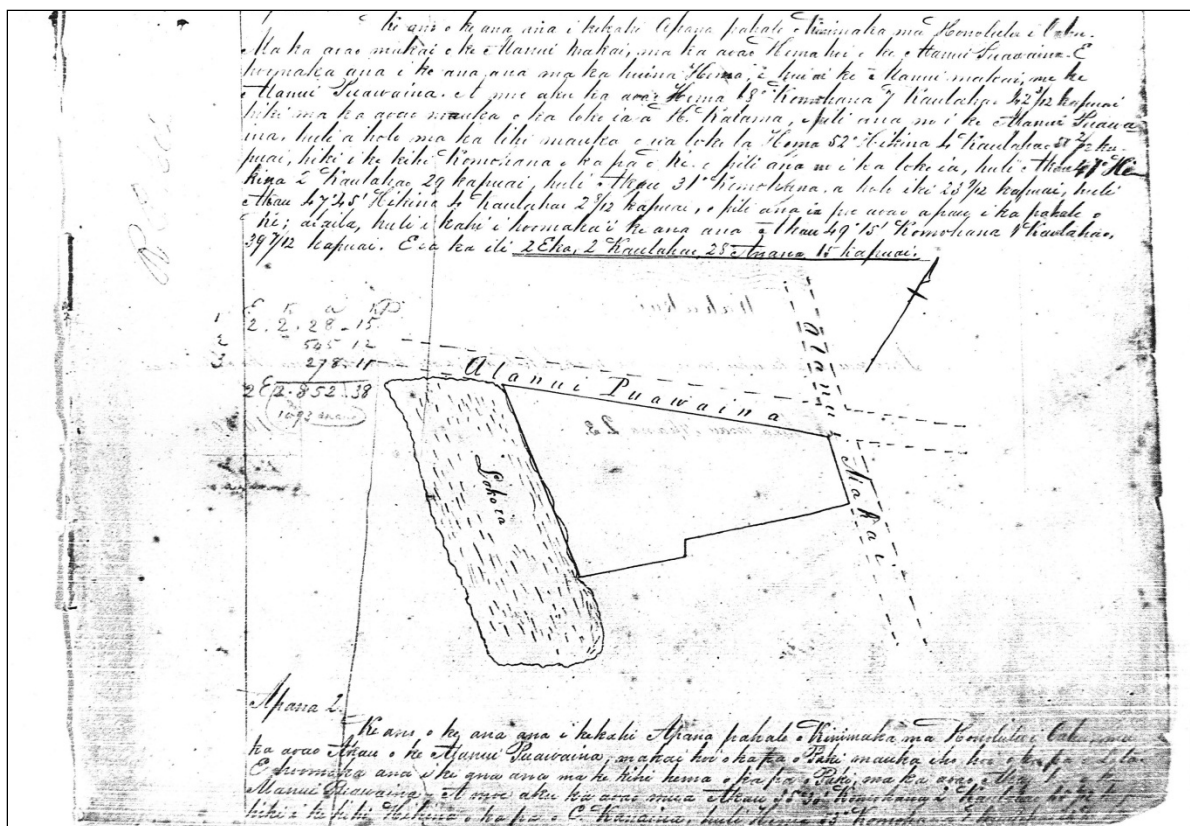 Ke ano o ke ana ana i kekahi Apana pahale o Kinimaka ma Honolulu i Oahu.
Ma ka aoao makai o ke Alanui makai, ma ka aoao Hema hoi o ke Alanui Puawaina. E
hoomaka ana i ke ana ana ma ka huina Hema, i hui ai ke Alanui makai, me ke
Alanui Puawaina. A moe aku ka aoao Hema Komohana 7 Kaulahao. 42 3/12 kapuai
hiki ma ka aoao mauka o ka loko ia a K. Kalama, e pili ana no i ke Alanui Puawa
ina, huli a holo ma ka lihi mauka o ua loko la Hema 52° Hikina 4 Kaulahao ka
puai, hiki i ke kihi Komohana o ka pa o Ke. e pili ana no i ka loko ia, huli Akau 47° Hi
kina 2 Kaulahao 29 kapuai, huli Akau 31° Komohana, a holo iki 23 9/12 kapuai, huli
Akau 47°45' Hikina 4 Kaulahao 2 9/12 kapuai, e pili ana ia mau aoao apau i ka pahale o
Ke; alaila, huli i kahi i hoomaka'i ke ana ana Akau 49°15' Komohana 1 Kaulahao,
39 7/12 kapuai. Eia ka ili 2 Eka, 2 Kaulahao 28 Anana 15 Kapuai.
E K a Kp
1 2. 2. 28 - 15
2 545 12
3 278 - 11
2 E 2. 852. 38
1092 anana
Alanui Puawaina
Alanui
Makai.
Loko ia
Apana 2.
Ke ano o ke ana ana i kekahi Apana pahale o Kinimaka ma Honolulu i Oahu, ma
ka aoao Akau o ke Alanui Puawaina, makai hoi o ka pa o Paki mauka iho hoi i ka pa o
E hoomaka ana i ke ana ana ma ke kihi hema o ka pa o Paki, ma ka aoao
Alanui Puawaina. A moe aku ka aoao mua Akau Komohana 2
hiki i ke kihi Hikina o ka pa o C. Kanaina, huli Hema Komohana